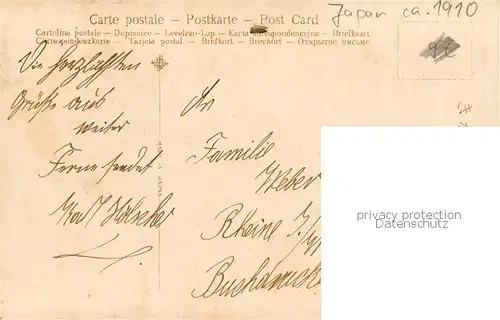 Japan ca. 1910
Carte postale – Postkarte – Post Card
Cartolina postale – Dopisnice – Levelezo-Lap – Karta korespondencyjna – Briefkaart
Correspondenzkarte – Tarjeta postal – Brefkort – Brevkort – Открытое письмо
Die herzlichsten
Grüße aus
weiter
Ferne sendet
Karl Hölscher
An
Familie
Weber
Rheine
Buchdrucke
privacy protection
Datenschutz